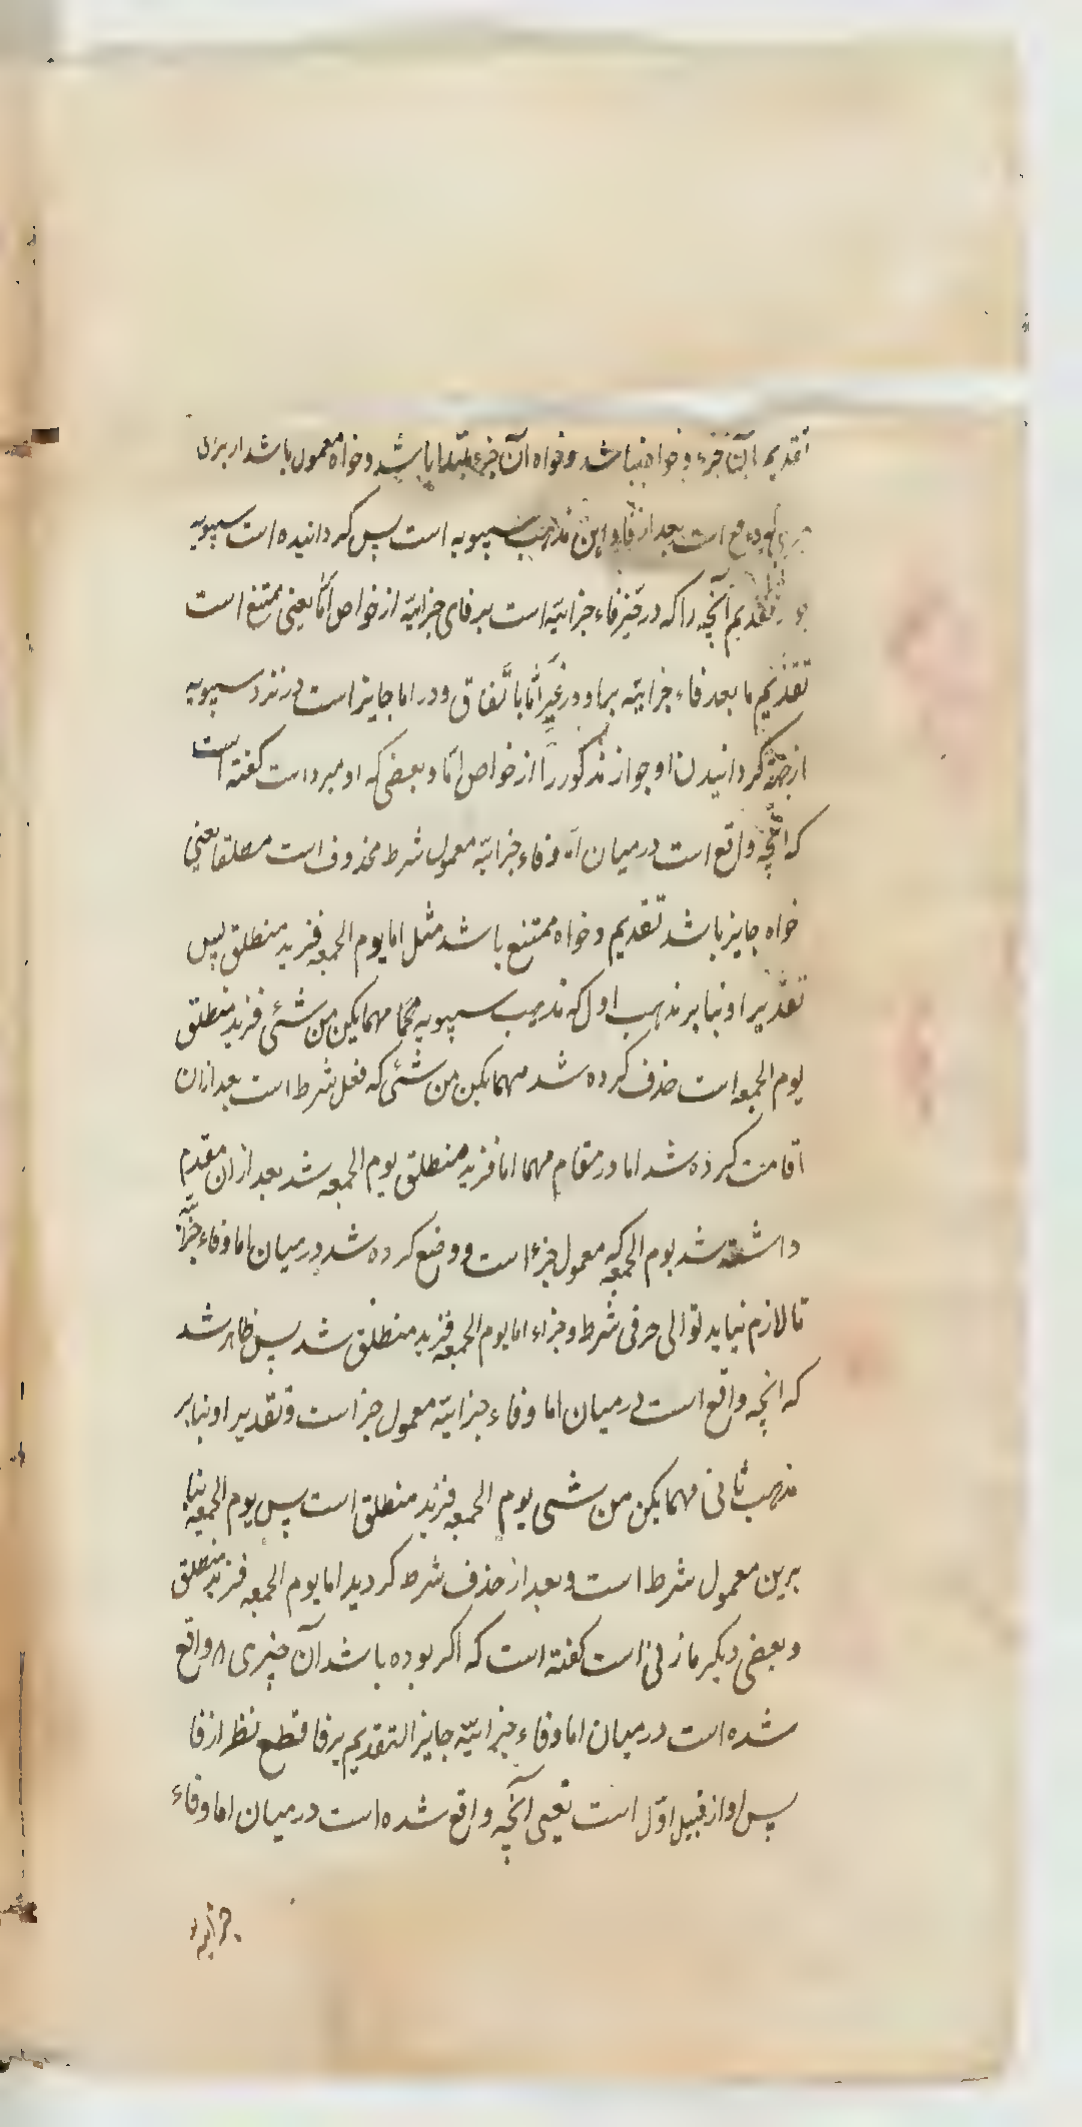 تقدیم آن جزء و خواه نباشد و خواه آن جزء مبتدا باشد و خواه معمول باشد از برای
است بعد از فا و این مذهب سیبویه است پس کردانیده است سیبویه
تقدیم آنچه را که در حیز فاء جزائیه است بر فای جزائیه از خواص امّا یعنی ممتنع است
تقدیم ما بعد فاء جزائیه بر او در غیر امّا باتّفاق و در اما جایز است در نزد سیبویه
از جهة کردانیدن او جواز مذکور را از خواص امّا و بعضی که او مبرد است کفته است
که آنچه واقع است در میان اما و فاء جزائیه معمول شرط محذوف است مطلقا یعنی
خواه جایز باشد تقدیم و خواه ممتنع باشد مثل اما یوم الجمعه فزید منطلق پس
تقدیر او بنا بر مذهب اول که مذهب سیبویه مهما یکن من شئی فزید منطلق
یوم الجمعه است حذف کرده شد مهما یکن من شئی که فعل شرط است بعد ازان
اقامت کرده شد اما در مقام مهما اما فزید منطلق یوم الجمعه شد بعد از ان مقدم
داشته شد یوم الجمعه که معمول جزء است و وضع کرده شد در میان اما و فاء جزائیه
تا لازم نیاید توالی حرفی شرط و جزاء اما یوم الجمعه فزید منطلق شد پس ظاهر شد
که انچه واقع است در میان اما و فاء جزائیه معمول جزا است و تقدیر او بنا بر
مذهب ثانی مهما یکن من شی یوم الجمعه فزید منطلق است پس یوم الجمعه بنا
برین معمول شرط است و بعد از حذف شرط کردید اما یوم الجمعه فزید منطلق
و بعضی دیکر مازنی است کفته است که اکر بوده باشد آن چیزی واقع
شده است در میان اما و فاء جزائیه جایز التقدیم بر فا قطع نظر از فا
پس او از قبیل اوّل است یعنی آنچه واقع شده است در میان اما و فاء
جزائیه